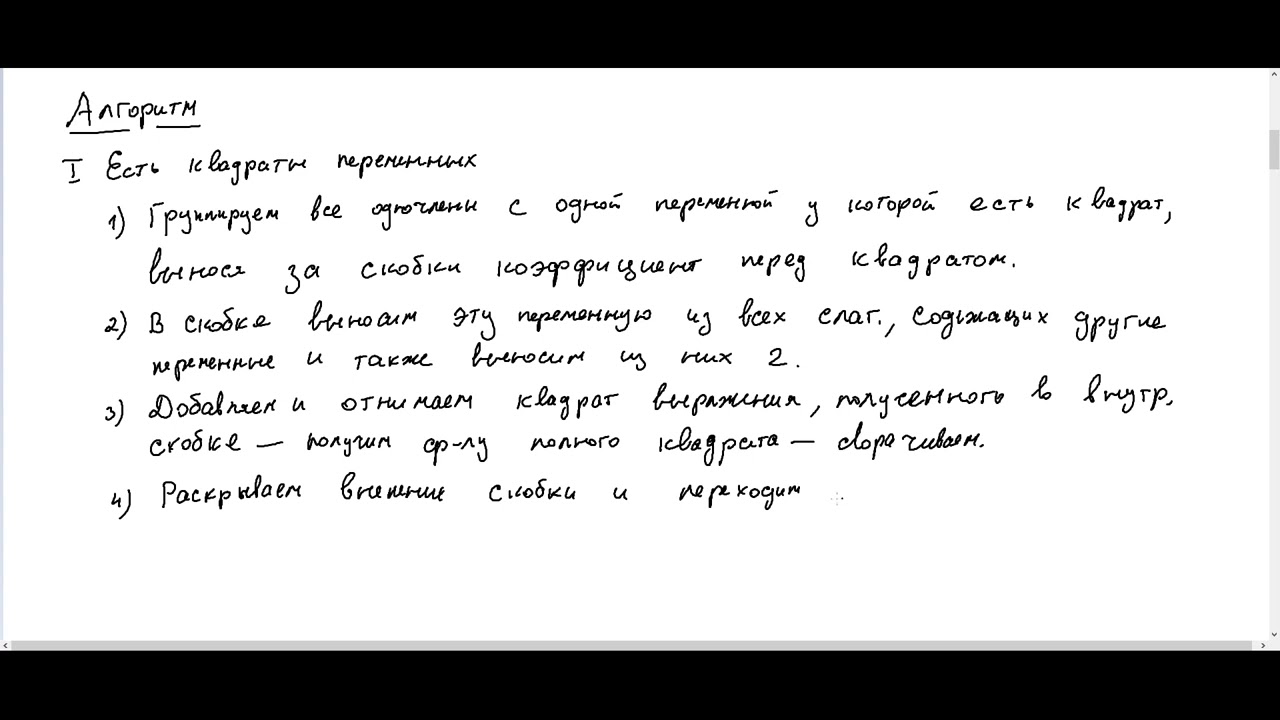 Алгоритм
I Есть квадраты переменных
1) Группируем все одночлены с одной переменной у которой есть квадрат,
вынося за скобки коэффициент перед квадратом.
2) В скобке выносим эту переменную из всех слаг., содержащих другие
переменные и также выносим из них 2.
3) Добавляем и отнимаем квадрат выражения, полученного в внутр.
скобке — получим ф-лу полного квадрата — сворачиваем.
4) Раскрываем внешние скобки и переходим